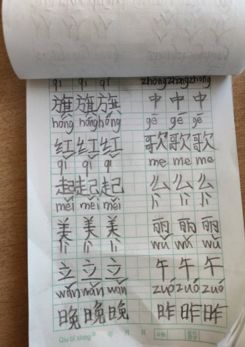 qí qí qí zhōng zhōng zhōng
旗 旗 旗 中 中 中
hóng hóng hóng gē gē gē
红 红 红 歌 歌 歌
qǐ qǐ qǐ me me me
起 起 起 么 么 么
měi měi měi lì lì lì
美 美 美 丽 丽 丽
lì lì lì wǔ wǔ wǔ
立 立 立 午 午 午
wǎn wǎn wǎn zuó zuó zuó
晚 晚 晚 昨 昨 昨